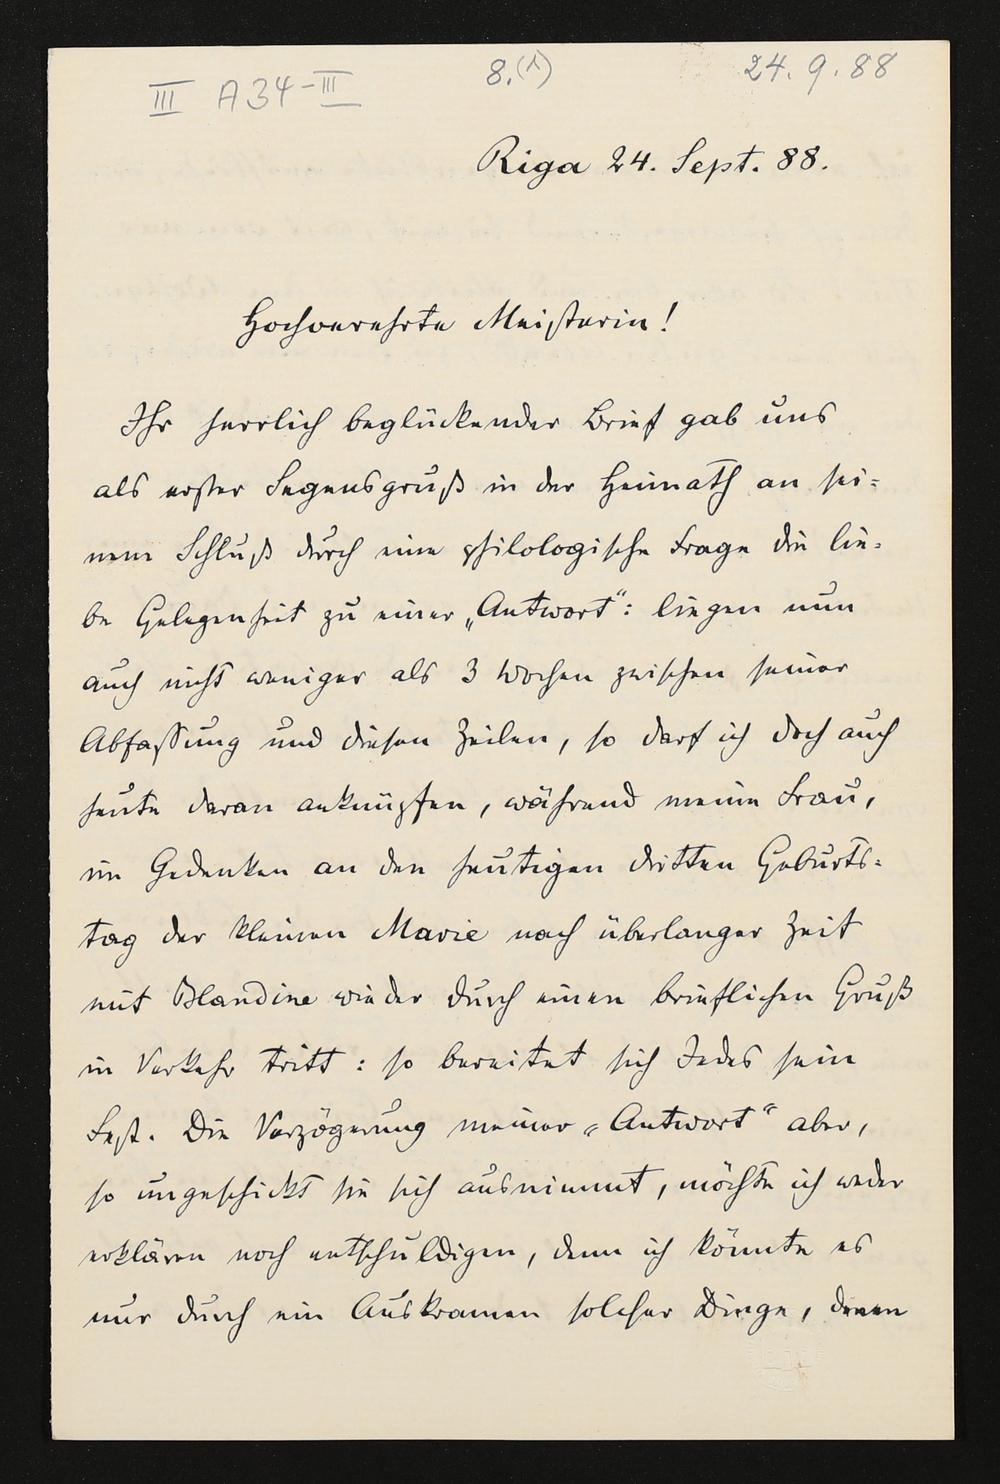 III A 34-III
8.(1)
24.9.88
Riga 24. Sept. 88.
Hochverehrte Meisterin!
Ihr herrlich beglückender Brief gab uns
als erster Segensgruß in der Heimath an sei=
nem Schluß durch eine philologische Frage die lie=
be Gelegenheit zu einer „Antwort“: liegen nun
auch nicht weniger als 3 Wochen zwischen seiner
Abfassung und diesen Zeilen, so darf ich doch auch
heute daran anknüpfen, während meine Frau,
im Gedenken an den heutigen dritten Geburts=
tag der kleinen Marie nach überlanger Zeit
mit Blandine wieder durch einen brieflichen Gruß
in Verkehr tritt: so bereitet sich Jedes sein
Fest. Die Verzögerung meiner „Antwort“ aber,
so ungeschickt sie sich ausnimmt, möchte ich weder
erklären noch entschuldigen, denn ich könnte es
nur durch ein Auskramen solcher Dinge, denen